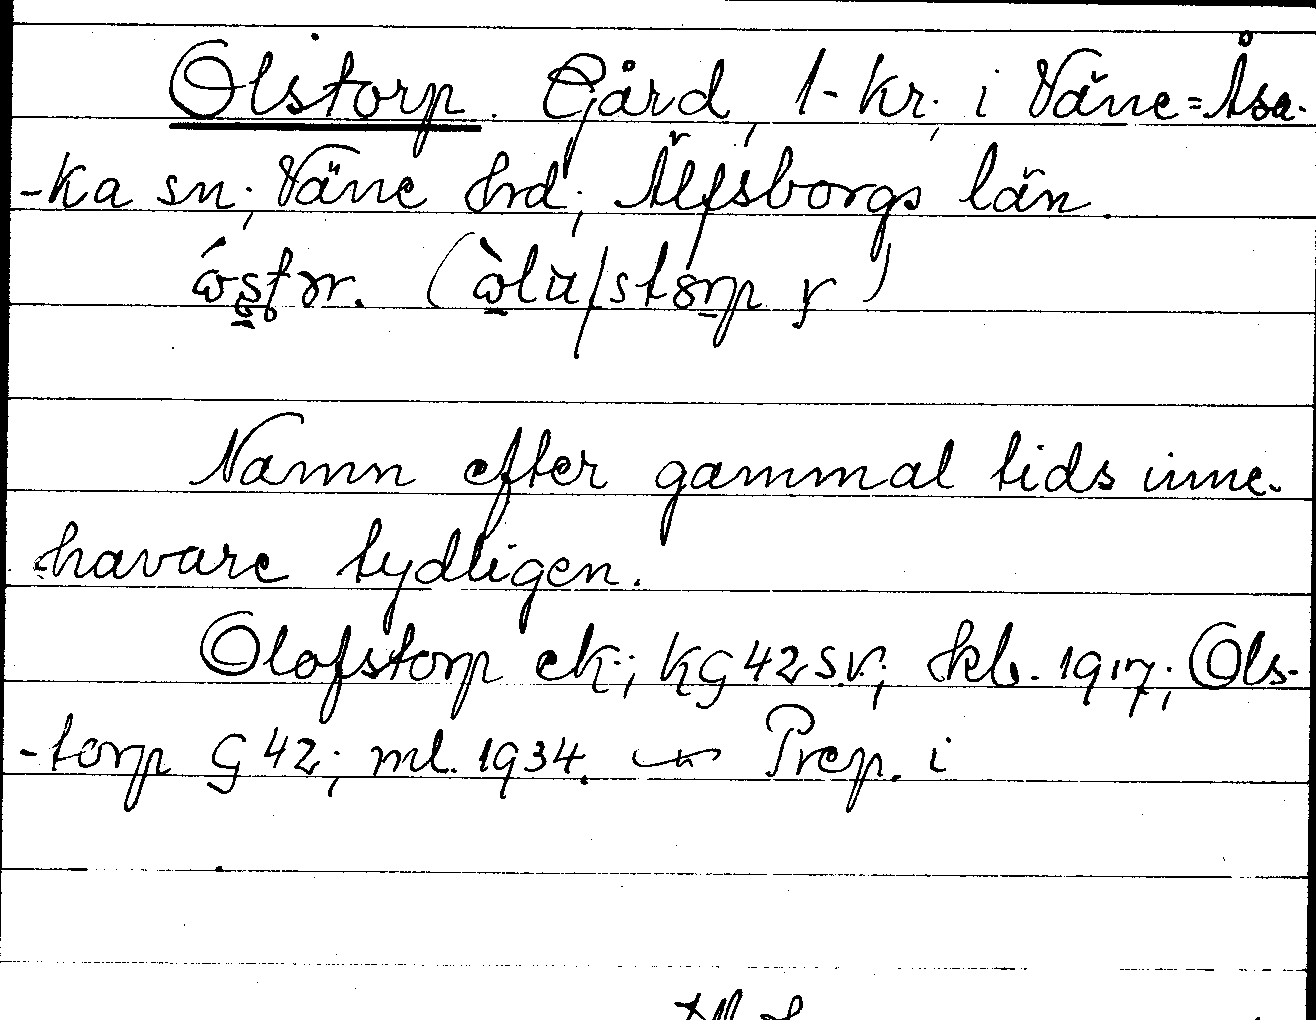 Olstorp. Gård, 1-kr, i Väne=Åsa-
-ka sn; Väne hrd; Älfsborgs län.
(òla/storp r)
Namn efter gammal tids inne-
havare tydligen.
Olofstorp ek; KG42SV; skb. 1917; Ols-
-torp G42; ml. 1934. Prep. i